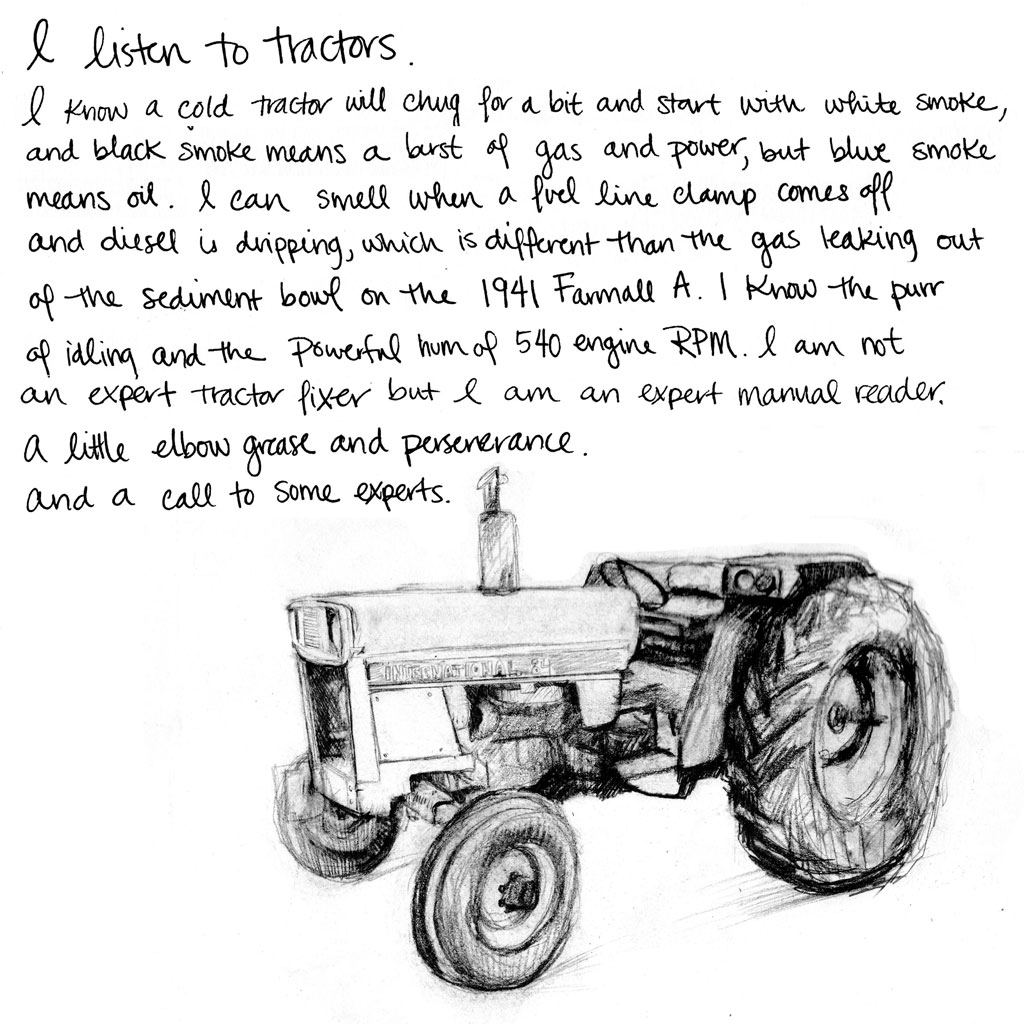 I listen to tractors.
I know a cold tractor will chug for a bit and start with white smoke,
and black smoke means a burst of gas and power, but blue smoke
means oil. I can smell when a fuel line clamp comes off
and diesel is dripping, which is different than the gas leaking out
of the sediment bowl on the 1941 Farmall A. I know the purr
of idling and the powerful hum of 540 engine RPM. I am not
an expert tractor fixer but I am an expert manual reader.
A little elbow grease and perseverance.
and a call to some experts.
INTERNATIONAL 84